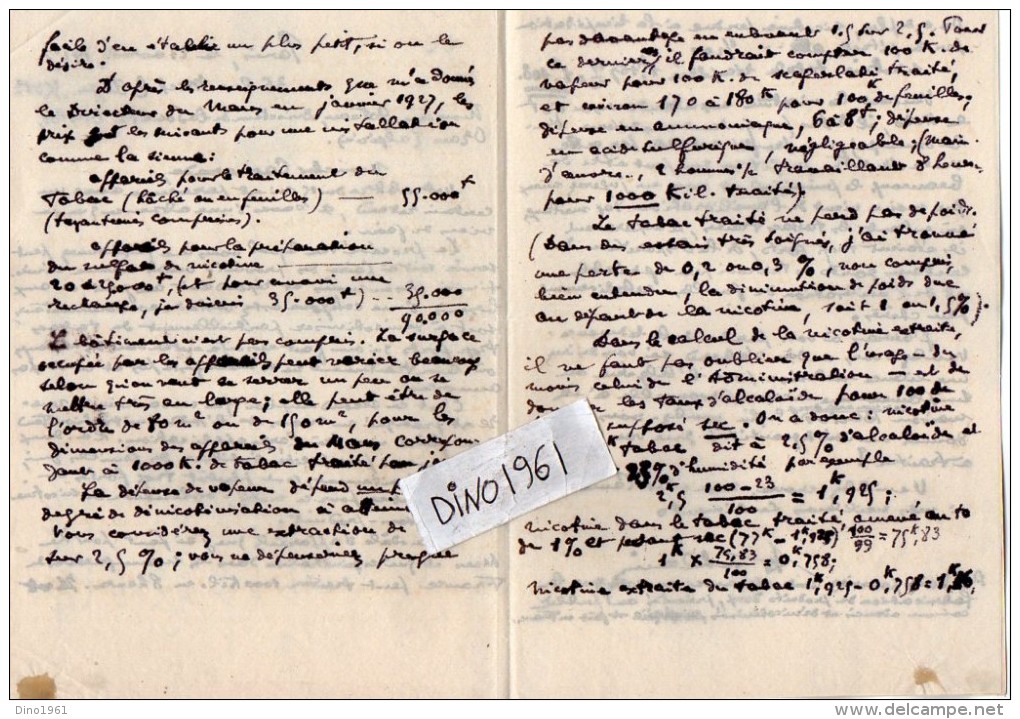 facile d'en établir un plus petit, si on le
désire.
D'après les renseignements que m'a donnés
le Directeur du Mans en janvier 1927, les
prix les suivants pour une installation
comme la sienne :
appareils pour le traitement du
Tabac (hâché ou en feuilles) — 55.000 f
(tuyauteries comprises).
appareils pour la préparation
du sulfate de nicotine
20 à 25000 f, et pour avoir une
rechange, je dirais 35.000 f) -- 35.000
90,000
Le bâtiment n'est pas compris. La surface
occupée par les appareils peut varier beaucoup
selon qu'on veut se serrer un peu ou se
mettre très au large ; elle peut être de
l'ordre de 80 m² ou de 150 m², pour les
dimensions des appareils du Mans correspon
dant à 1000 K. de tabac traité par j
La dépense de vapeur dépend
degré de dénicotinisation à
Vous considérez une extraction de
sur 2,5 % ; vous ne dépenserez presque
pas davantage en enlevant 1.5 sur 2,5. Pour
ce dernier, il faudrait compter 100 K. de
vapeur pour 100 K. de scaferlati traité,
et environ 170 à 180 K pour 100 K de feuilles ;
dépense en ammoniaque, 6 à 8 f ; dépense
en acide sulfurique, négligeable ; (main
d'œuvre, 2 hommes travaillant 8 heures
pour 1000 Kil. traités).
Le tabac traité ne perd pas de poids.
(Dans des essais très soignés, j'ai trouvé
une perte de 0,2 ou 0,3 %, non compris,
bien entendu, la diminution de poids due
au départ de la nicotine, soit 1 ou 1,5 %).
Dans le calcul de la nicotine extraite,
il ne faut pas oublier que l'usage — du
moins celui de l'Administration — est de
donner les taux d'alcaloïde pour 100 de
supposé sec. On a donc : nicotine
K tabac dit à 2.5 % d'alcaloïde et
23 % d'humidité par exemple
2 K,5 100 - 23 / 100 = 1 K,925 ;
nicotine dans le tabac traité amené au to
de 1 % et pesant sec (77 K - 1 K,925) 100/99 = 75 K,83
1 K × 75,83 / 100 = 0 K,758 ;
nicotine extraite du tabac 1 K,925 - 0 K,758 = 1 K,16
DINO1961
Dino1961
www.delcampe.net